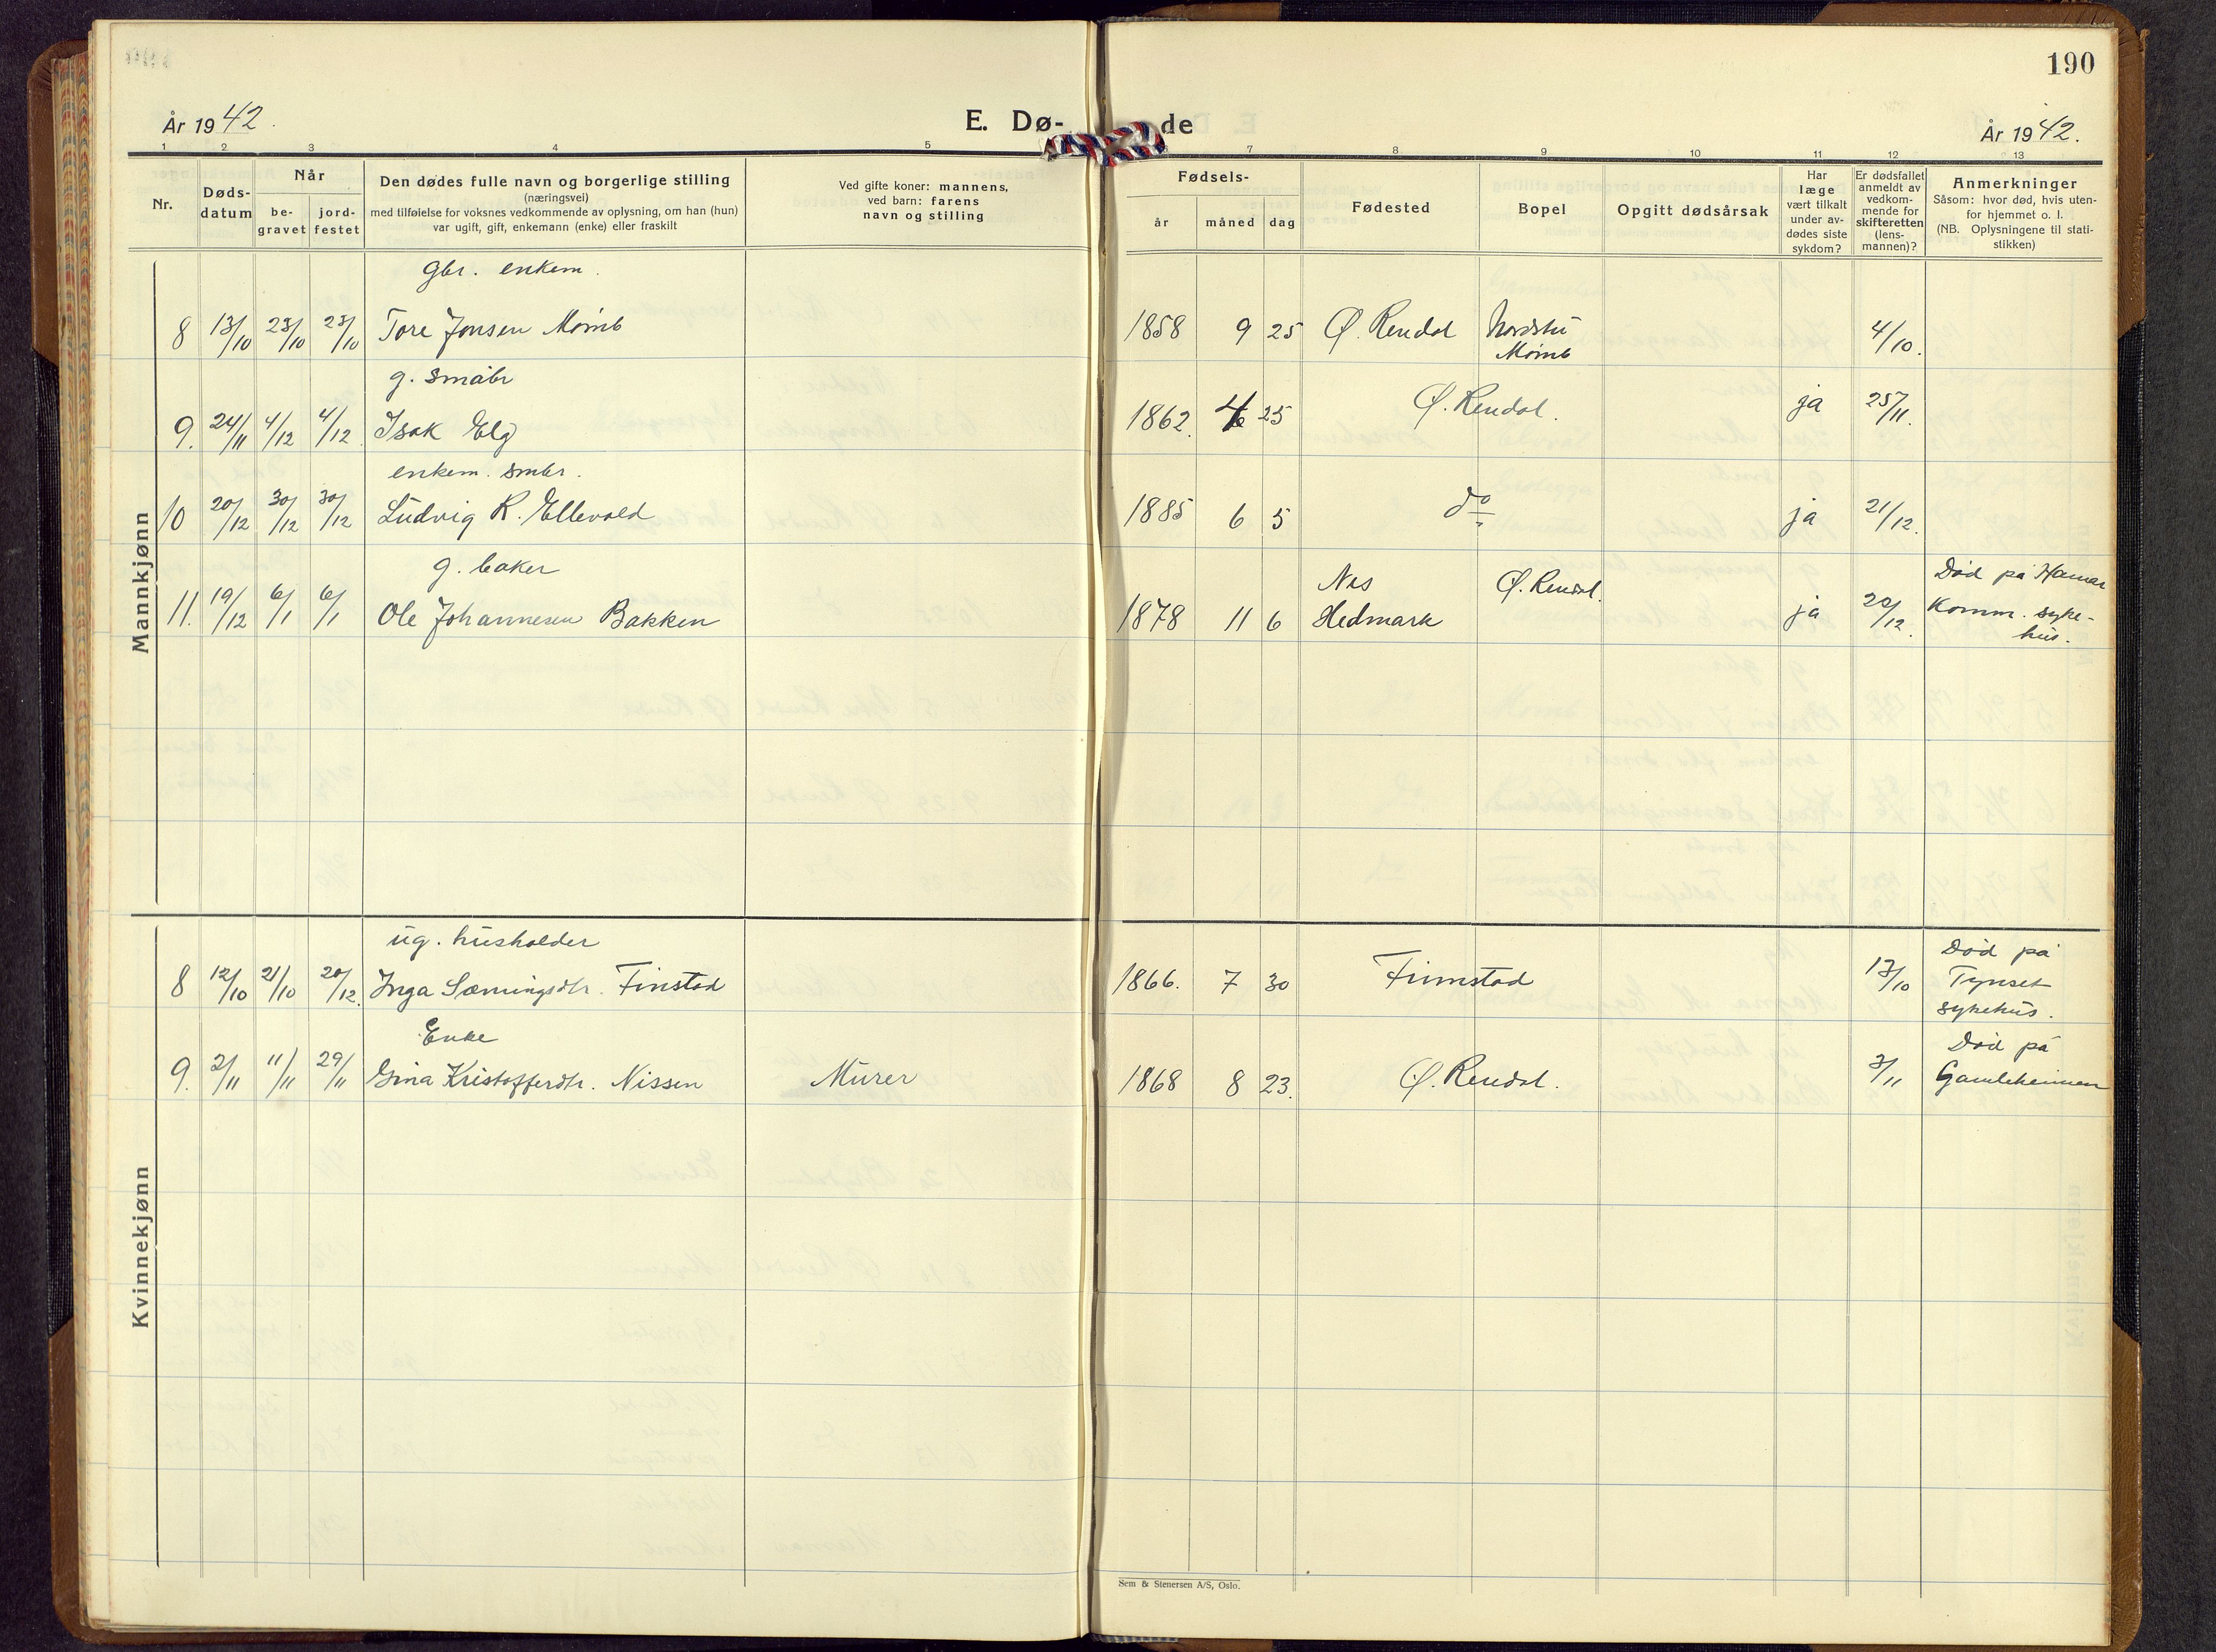 190
År 1942.
E. Dø-
de
År 1942.
1 2 3 4 5 7 8 9 10 11 12 13
Nr.
Døds-
datum
Når
be-
gravet
jord-
festet
Den dødes fulle navn og borgerlige stilling
(næringsvei)
med tilføielse for voksnes vedkommende av oplysning, om han (hun)
var ugift, gift, enkemann (enke) eller fraskilt
Ved gifte koner: mannens,
ved barn: farens
navn og stilling
Fødsels-
år måned dag
Fødested
Bopel
Opgitt dødsårsak
Har
læge
vært tilkalt
under av-
dødes siste
sykdom?
Er dødsfallet
anmeldt av
vedkom-
mende for
skifteretten
(lens-
mannen)?
Anmerkninger
Såsom: hvor død, hvis uten-
for hjemmet o. l.
(NB. Oplysningene til stati-
stikken)
Mannkjønn
gbr. enkem.
8 13/10 23/10 23/10 Tore Jonsen Mømb 1858 9 25 Ø. Rendal Nordstu 4/10.
Mømb
g. småbr
9. 24/11 4/12 4/12. Isak Elg 1862. 25 Ø. Rendal. ja 25/11.
enkem. smbr.
10 20/12 30/12 30/12 Ludvig R. Ellevold 1885 6 5 do ja 21/12.
g. baker
11. 19/12 6/1 6/1 Ole Johannesen Bakken 1878 11 6 Nes Ø. Rendal. ja 20/12.
Hedmark
Død på Hamar
Komm. syke-
hus.
Kvinnekjønn
ug. husholder
8 12/10 21/10 20/12. Inga Sæmingsdtr. Finstad 1866. 7 30 Finnstad 13/10
Død på
Tynset
sykehus.
Enke
9. 2/11 11/11 29/11 Gina Kristofferdtr. Nissen Murer 1868 8 23. Ø. Rendal. 3/11
Død på
Gamleheimen
Sem & Stenersen A/S, Oslo.